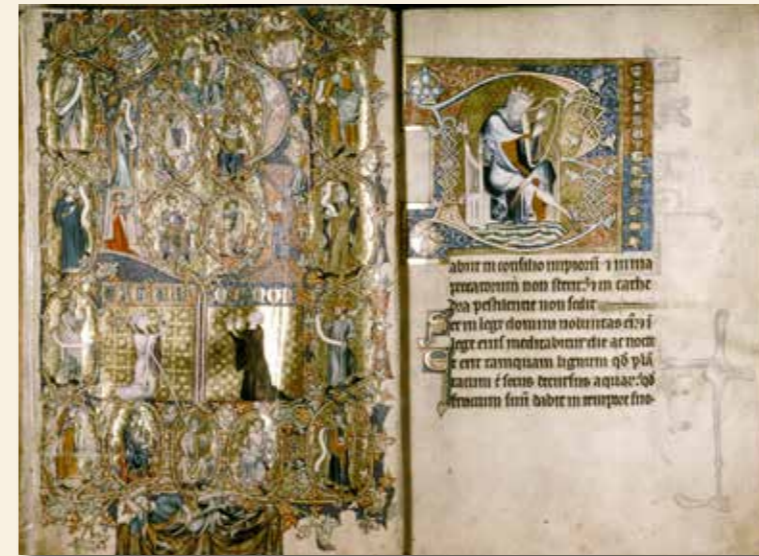 abiit in consilio impiorū ⁊ in uia
peccatorum non stetit: ⁊ in cathe
dra pestilentie non sedit
Set in lege domini uoluntas eiꝰ: ⁊ ī
lege eius meditabitur die ac nocte
Et erit tamquam lignum qd̄ plā
tatum ē secus decursus aquaꝝ: qd̄
fructum suū dabit in tempore suo